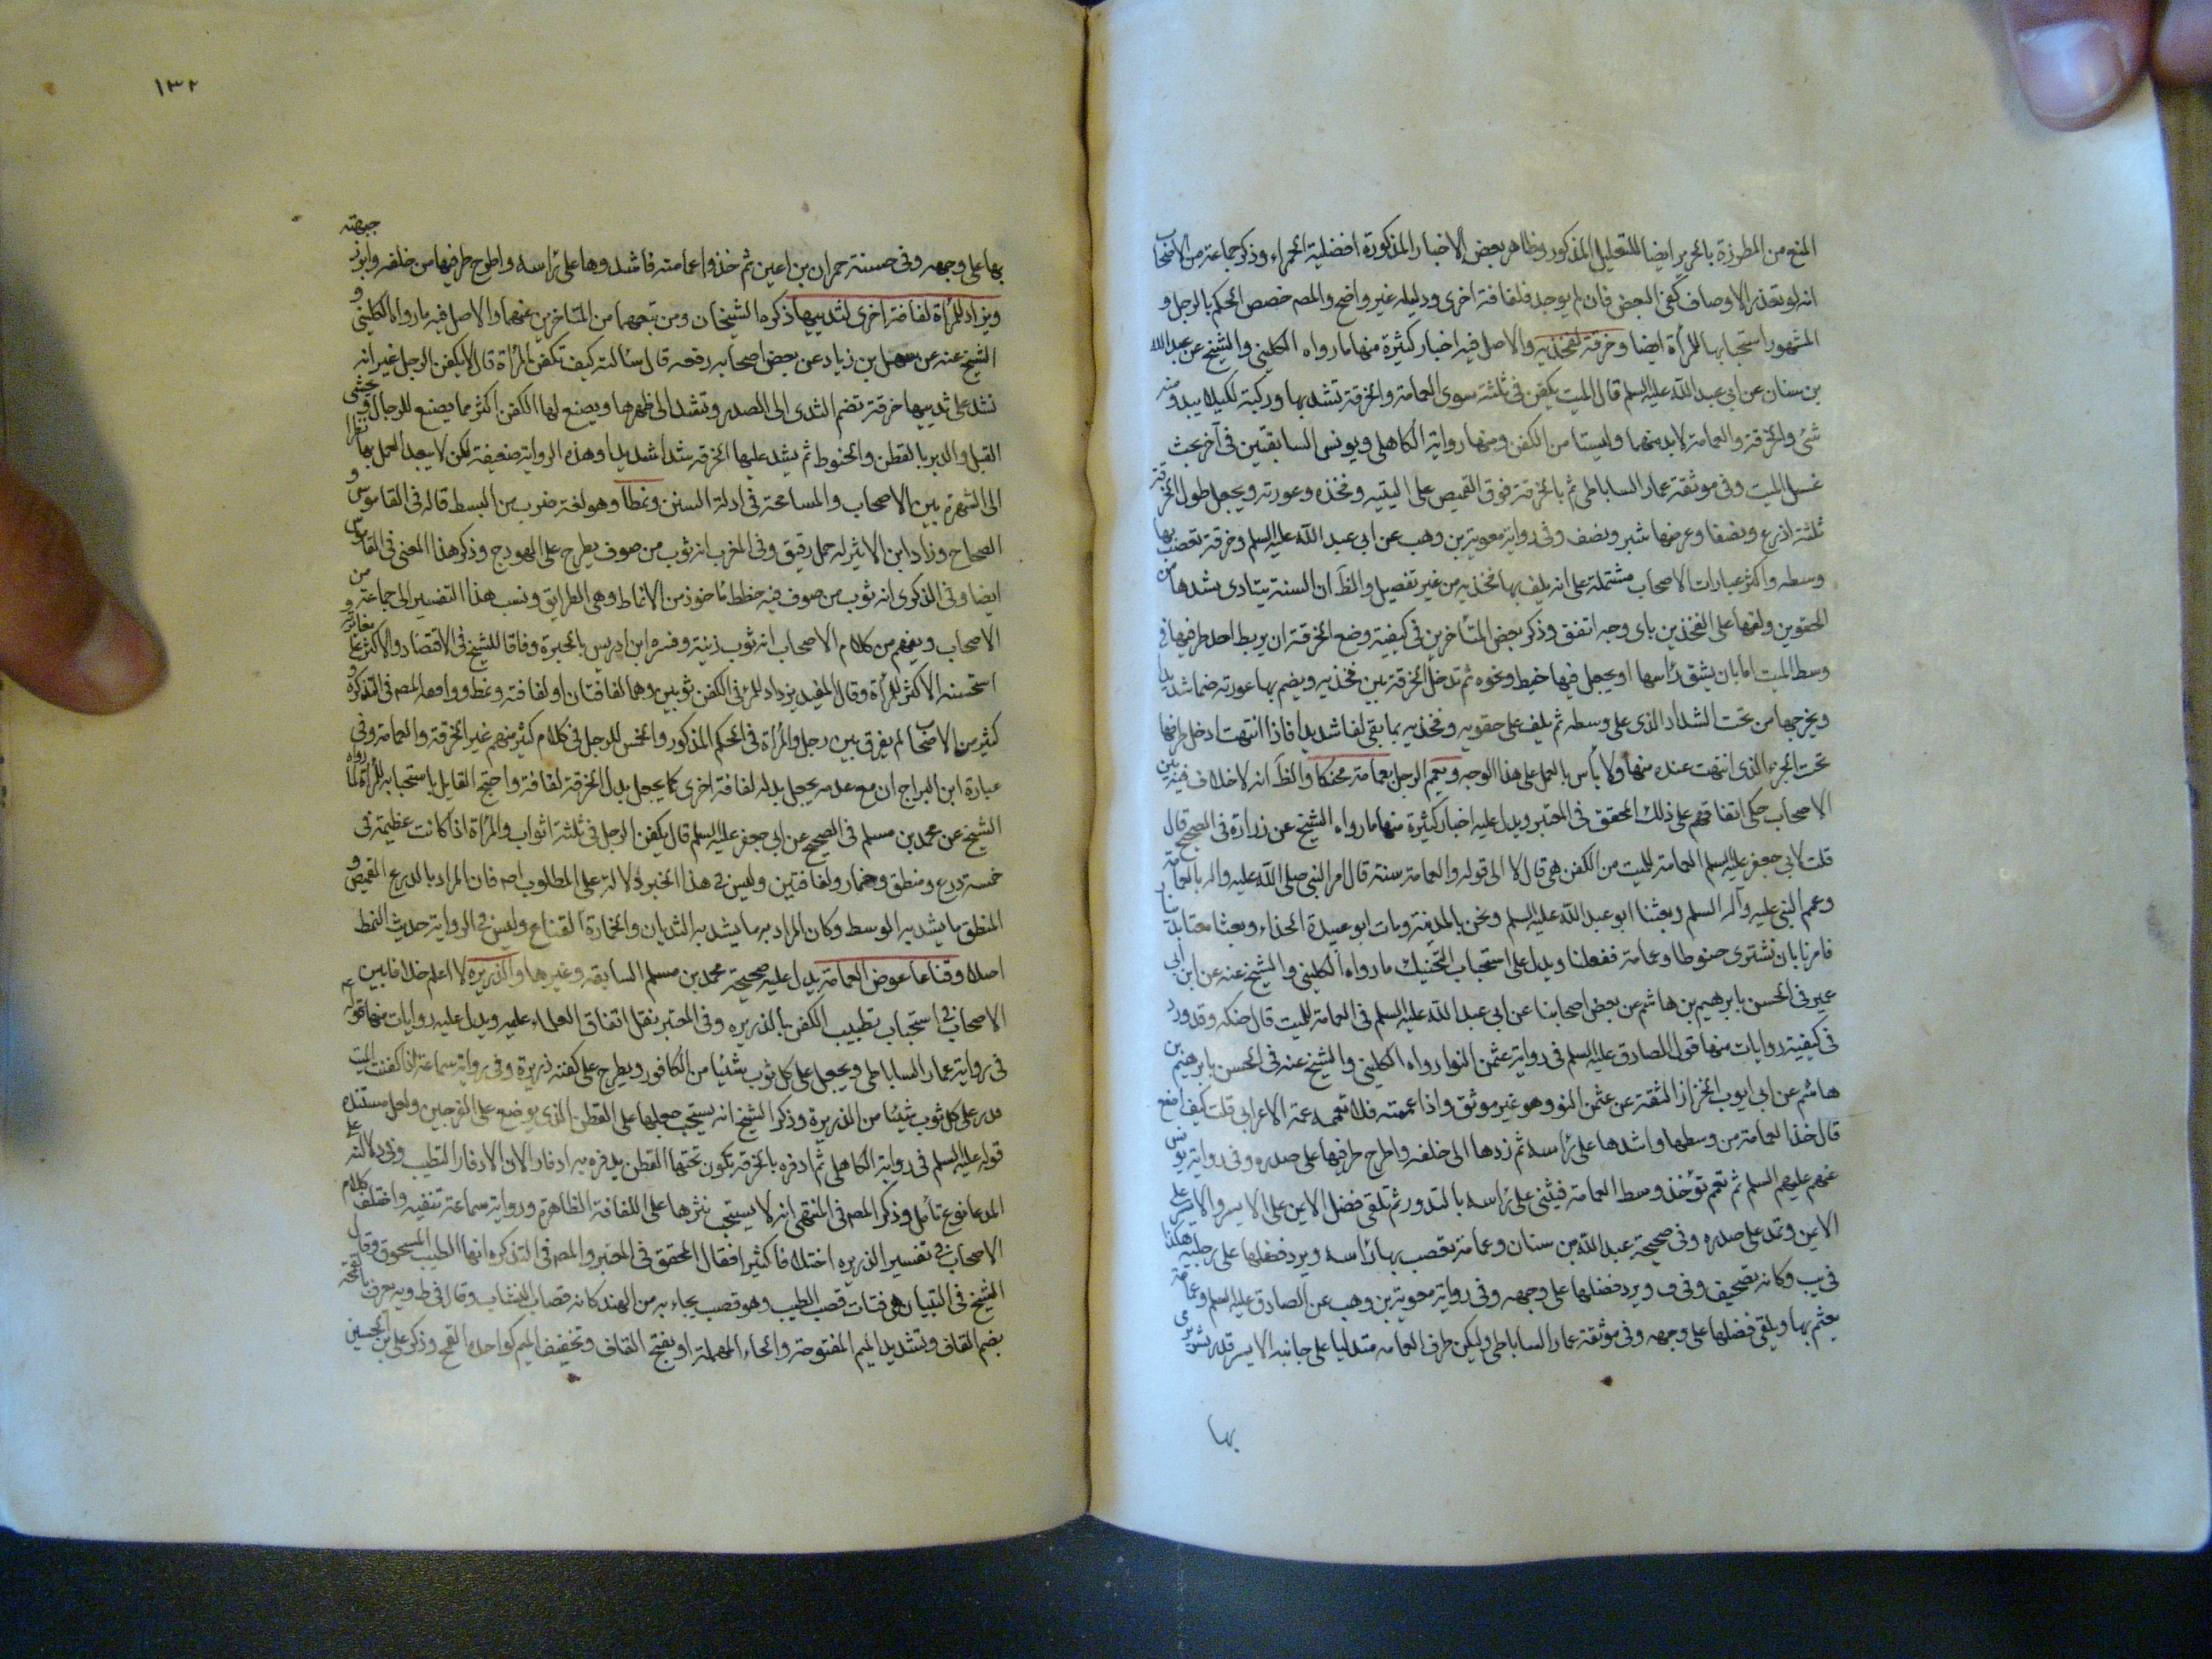 المنع من المطرزة بالحرير ايضا للتعليل المذكور وظاهر بعض الاخبار المذكورة افضلية الحمراء وذكر جماعة من الاصحاب
انه لو تعذر الاوصاف كفى البعض فان لم يوجد فلفافة اخرى ودليله غير واضح والمصـ خصص الحكم بالرجل و
المشهور استحبابها للمرأة ايضا وخرقة لفخذيه والاصل فيه اخبار كثيرة منها ما رواه الكليني والشيخ عن عبد الله
بن سنان عن ابي عبد الله عليه السلم قال الميت يكفن في ثلثة سوى العمامة والخرقة تشد بها وركيه لكيلا يبدو منه
شئ والخرقة والعمامة لابد منهما وليستا من الكفن ومنها رواية الكاهلي ويونس السابقتين في آخر بحث
غسل الميت وفي موثقة عمار الساباطي ثم بالخرقة فوق القميص على اليتيه وفخذه وعورته ويجعل طول الخرقة
ثلثة اذرع ونصفا وعرضها شبر ونصف وفي رواية معوية بن وهب عن ابي عبد الله عليه السلم وخرقة تعصب بها
وسطه واكثر عبارات الاصحاب مشتملة على انه يلف بها فخذيه من غير تفصيل والظ ان السنة يتادى بشدها من
الحقوين ولفها على الفخذين باى وجه اتفق وذكر بعض المتأخرين في كيفية وضع الخرقة ان يربط احد طرفيها في
وسط الميت اما بان يشق رأسها او يجعل فيها خيط ونحوه ثم تدخل الخرقة بين فخذيه ويضم بها عورته ضما شديدا
ويخرجها من تحت الشداد الذى على وسطه ثم يلف على حقويه وفخذيه بما بقى لفا شديدا فاذا انتهت ادخل طرفها
تحت الجزء الذى انتهت عنده منها ولا بأس بالعمل على هذا الوجه ويعمم الرجل بعمامة محنكا والظ انه لا خلاف فيه بين
الاصحاب حكى اتفاقهم على ذلك المحقق في المعتبر ويدل عليه اخبار كثيرة منها ما رواه الشيخ عن زرارة في الصحيح قال
قلت لابي جعفر عليه السلم العمامة للميت من الكفن هي قال لا الى قوله والعمامة سنة قال امر النبي صلى الله عليه واله بالعمامة
وعمم النبي عليه وآله السلم وبعثنا ابو عبد الله عليه السلم ونحن بالمدينة ومات ابو عبيدة الحذاء وبعث معنا بدينار
فامرنا بان نشترى حنوطا وعمامة ففعلنا ويدل على استحباب التحنيك ما رواه الكليني والشيخ عنه عن ابن ابي
عمير في الحسن بابرهيم بن هاشم عن بعض اصحابنا عن ابي عبد الله عليه السلم في العمامة للميت قال حنكه وقد ورد
في كيفية روايات منها قول الصادق عليه السلم في رواية عثمن النوا رواه الكليني والشيخ عنه في الحسن بابرهيم بن
هاشم عن ابي ايوب الخزاز الثقة عن عثمن النوا وهو غير موثق واذا عممته فلا تعممه عمة الاعرابي قلت كيف اصنع
قال خذ العمامة من وسطها وانشدها على رأسه ثم ردها الى خلفه واطرح طرفيها على صدره وفي رواية يونس
عنهم عليهم السلم ثم تعمم تؤخذ وسط العمامة فيثنى على رأسه بالتدور ثم تلقى فضل الايمن على الايسر والايسر على
الايمن وتمد على صدره وفي صحيحة عبد الله بن سنان وعمامة تعصب بها رأسه ويرد فضلها على رجليه هكذا
في يب وكانه تصحيف وفي ف ويرد فضلها على وجهه وفي رواية معوية بن وهب عن الصادق عليه السلم وعمامة
يعتم بها ويلقى فضلها على وجهه وفي موثقة عمار الساباطي وليكن طرف العمامه متدليا على جانبه الايسر قدر شبر يرمى
بها
١٣٢
بها على وجهه وفي حسنة حمران بن اعين ثم خذوا عمامته فانشدوها على رأسه واطرح طرفيها من خلفه وابرز جبهته
ويزاد للمرأة لفافة اخرى لثدييها ذكره الشيخان ومن تبعهما من المتأخرين عنهما والاصل فيه ما رواه الكليني و
الشيخ عنه عن سهل بن زياد عن بعض اصحابه رفعه قال سألته كيف تكفن المرأة قال كما يكفن الرجل غير انه
تشد على ثدييها خرقة تضم الثدى الى الصدر وتشد الى ظهرها ويصنع لها الكفن اكثر مما يصنع للرجال ويحشى
القبل والدبر بالقطن والحنوط ثم يشد عليها الخرقة شدا شديدا وهذه الرواية ضعيفة لكن لا يبعد العمل بها نظرا
الى الشهرة بين الاصحاب والمسامحة في ادلة السنن ونمطا وهو لغة ضرب من البسط قاله في القاموس و
الصحاح وزاد ابن الاثير له خمل رقيق وفي المغرب انه ثوب من صوف يطرح على الهودج وذكر هذا المعنى في القاموس
ايضا وفي الذكرى انه ثوب من صوف فيه خطط مأخوذ من الانماط وهي الطرايق ونسب هذا التفسير الى جماعة من
الاصحاب ويفهم من كلام الاصحاب انه ثوب زينة وفسره ابن ادريس بالحبرة وفاقا للشيخ في الاقتصاد والاكثر على مغايرته و
استحبه الاكثر للمرأة وقال المفيد يزداد للمرأة في الكفن ثوبين وهما لفافتان او لفافة ونمط ووافقه المصـ في التذكرة و
كثير من الاصحاب لم يفرق بين رجل والمرأة في الحكم المذكور والخمس للرجل في كلام كثير منهم غير الخرقة والعمامة وفي
عبارة ابن البراج ان مع عدمه يجعل بدله لفافة اخرى كما يجعل بدل الخرقة لفافة واحتج القايل باستحبابه للمرأة بما رواه
الشيخ عن محمد بن مسلم في الصحيح عن ابي جعفر عليه السلم قال يكفن الرجل في ثلثة اثواب والمرأة اذا كانت عظيمة في
خمسة درع ومنطق وخمار ولفافتين وليس في هذا الخبر دلالة على المطلوب اصـ فان المراد بالدرع القميص و
المنطق ما يشد به الوسط وكان المراد به ما يشد به الثديان والخمارة القناع وليس في الرواية حديث النمط
اصلا وقناعا عوض العمامة يدل عليه صحيحة محمد بن مسلم السابقه وغيرها والذريره لا اعلم خلافا بين
الاصحاب في استحباب تطييب الكفن بالذريره وفي المعتبر نقل اتفاق العلماء عليه ويدل عليه روايات منها قوله عـ
في رواية عمار الساباطي ويجعل على كل ثوب شيئا من الكافور ويطرح على كفنه ذريرة وفي رواية سماعة اذا كفنت الميت
فذر على كل ثوب شيئا من الذريرة وذكر الشيخ انه يستحب جعلها على القطن الذى يوضع على الفرجين ولعل مستنده
قوله عليه السلم في رواية الكاهلي ثم اذفره بالخرقة تكون تحتها القطن يذفره به اذفارا لان الاذفار التطيب وفي دلالته على
المدعا نوع تأمل وذكر المصـ في المنتهى انه لا يستحب نثرها على اللفافة الظاهرة ورواية سماعة تنفيه واختلف كلام
الاصحاب في تفسير الذريره اختلافا كثيرا فقال المحقق في المعتبر والمصـ في التذكره انها الطيب المسحوق وقال
الشيخ في التبيان هي فتات قصب الطيب وهو قصب يجاء به من الهند كانه قصب النشاب وقال في ط ويه يعرف بالقمحة
بضم القاف وتشديد الميم المفتوحة والحاء المهملة او بفتح القاف وتخفيف الميم كواحدة القمح وذكر علي بن الحسين